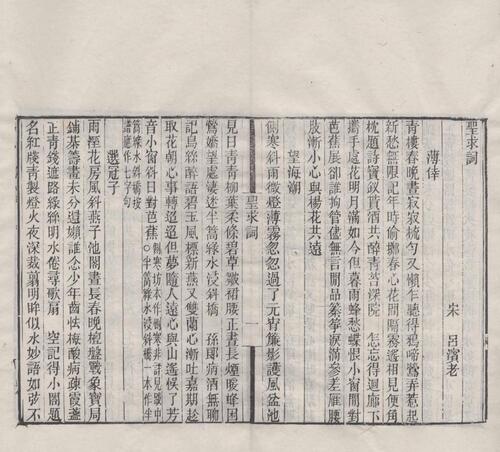 聖求詞
宋 呂濱老
薄倖
青樓春晚晝寂寂梳勻又嬾乍聽得鴉啼鶯弄惹起
新愁無限記年時偷擲春心花間隔霧遙相見便角
枕題詩寶釵貰酒共醉青苔深院 怎忘得迴廊下
攜手處花明月滿如今但暮雨蜂愁蝶恨小窗閒對
芭蕉展卻誰拘管儘無言閒品秦箏淚滿參差雁腰
肢漸小心與楊花共遠
望海潮
側寒斜雨微燈薄霧匆匆過了元宵簾影護風盆池
聖求詞 一
見日青青柳葉柔條碧草皺裙腰正晝長煙暖蜂困
鶯嬌望處淒迷半篙綠水浸斜橋 孫郎病酒無聊
記烏絲醉語碧玉風標新燕又雙蘭心漸吐嘉期趁
取花朝心事轉迢迢但夢隨人遠心與山遙候了芳
音小窗斜日對芭蕉 側寒坊本作惻寒非詩見中○半篙綠水浸斜橋一本作半
篙綠水斜橋按譜應作七字句
選冠子
雨溼花房風斜燕子池閣晝長春晚檀盤戰象寶局
鋪棊籌畫未分還嬾誰念少年齒怯梅酸病疎霞盞
正青錢遮路綠絲明水倦尋歌扇 空記得小閣題
名紅牋青製燈火夜深裁翦明眸似水妙語如弦不